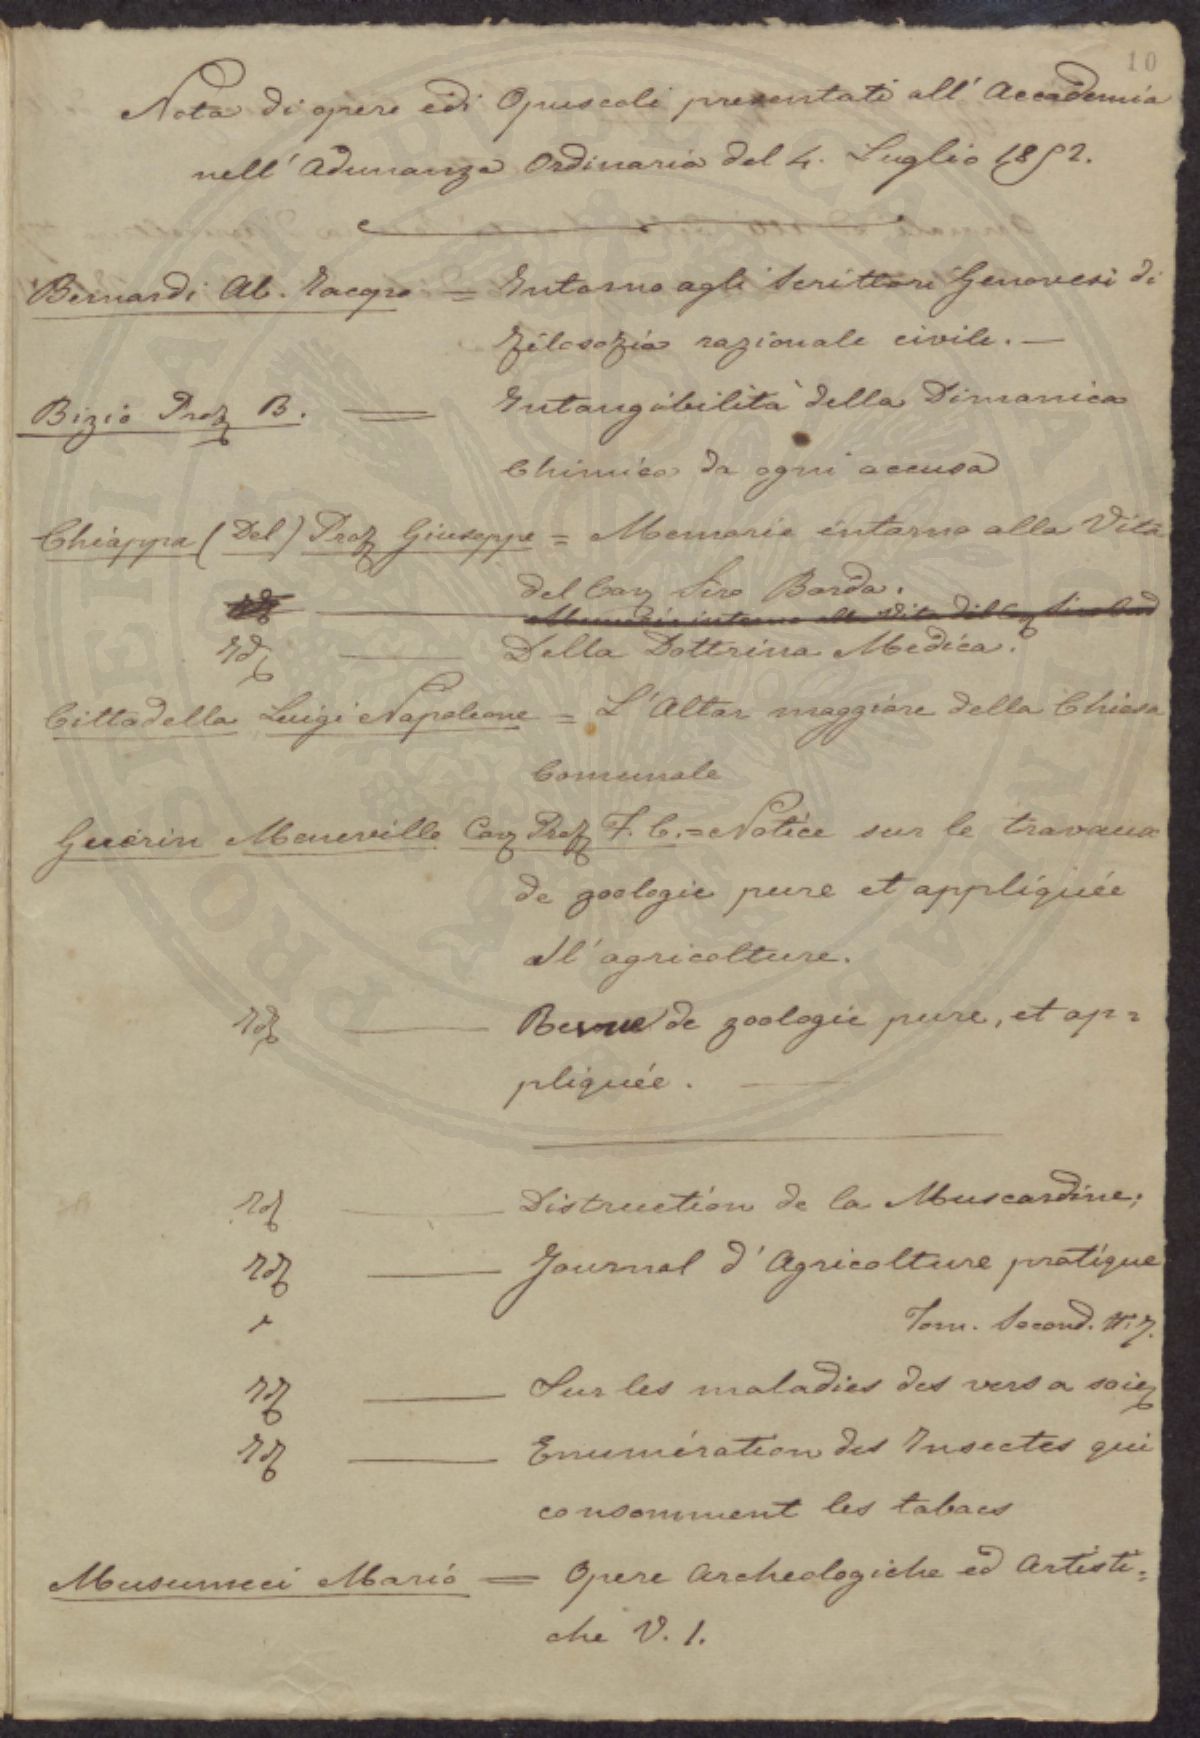 10
Nota di opere e di Opuscoli presentati all' Accademia
nell' Adunanza Ordinaria del 4. Luglio 1852.
Bernardi Ab. Jacopo = Intorno agli Scrittori Genovesi di
Filosofia razionale civile. —
Bizio Prof B. = Intangibilità della Dimanica
Chimica da ogni accusa
Chiappa (Del) Prof Giuseppe = Memorie intorno alla Vita
del Cav Siro Borda.
Id — Della Dottrina Medica.
Cittadella Luigi Napoleone = L'Altar maggiore della Chiesa
Comunale
Guérin Meneville Cav Prof F. C. = Notice sur le travaux
de zoologie pure et appliquée
a l'agricolture.
Id — Revue de zoologie pure, et ap=
pliquée. —
Id — Distruction de la Muscardine;
Id — Journal d'Agricolture pratique
Tom. Second. N. 7.
Id — Sur les maladies des vers a soie
Id — Enumération des Insectes qui
consomment les tabacs
Musumeci Mario = Opere Archeologiche ed Artisti=
che V. 1.